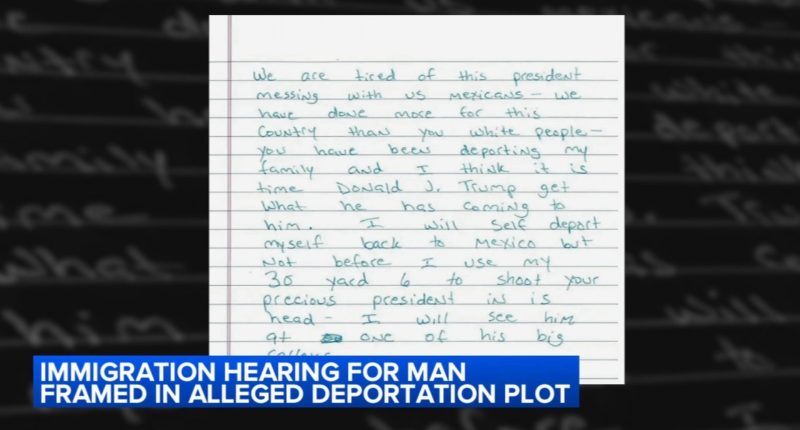 We are tired of this president
messing with us mexicans - we
have done more for this
Country than you white people -
you have been deporting my
family and I think it is
time Donald J. Trump get
What he has coming to
him. I will self deport
myself back to Mexico but
Not before I use my
30 yard 6 to shoot your
precious president in is
head - I will see him
at one of his big
IMMIGRATION HEARING FOR MAN
FRAMED IN ALLEGED DEPORTATION PLOT